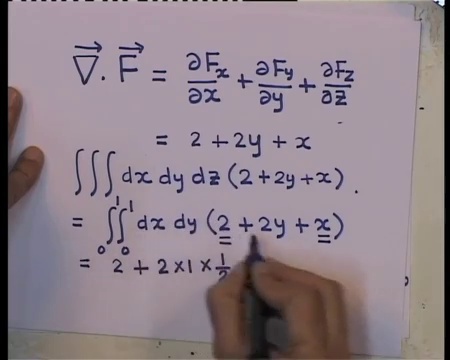 ∇⃗ . F⃗ = ∂Fx/∂x + ∂Fy/∂y + ∂Fz/∂z
= 2 + 2y + x
∫∫∫ dx dy dz (2 + 2y + x) .
= ∫₀¹∫₀¹ dx dy (2 + 2y + x)
= 2 + 2 × 1 ×